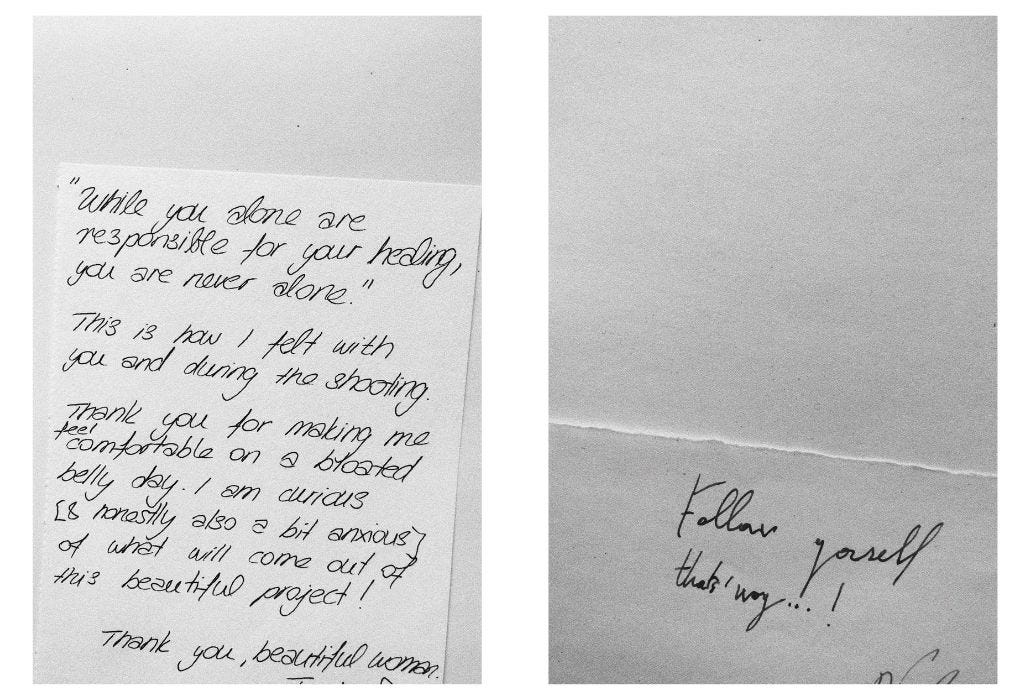 "While you alone are
responsible for your healing,
you are never alone."
This is how I felt with
you and during the shooting.
Thank you for making me
feel
comfortable on a bloated
belly day. I am curious
[& honestly also a bit anxious]
of what will come out of
this beautiful project!
Thank you, beautiful woman.
Follow yorself
thats' way...!